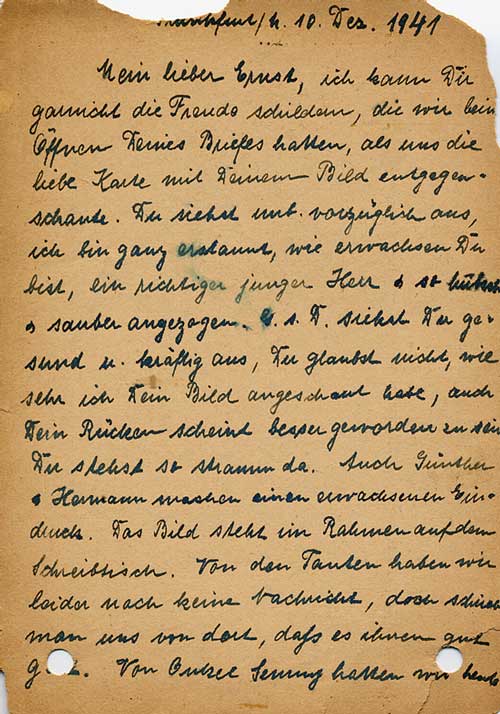 Frankfurt/M. 10. Dez. 1941
Mein lieber Ernst, ich kann Dir
garnicht die Freude schildern, die wir beim
Öffnen Deines Briefes hatten, als uns die
liebe Karte mit Deinem Bild entgegen-
schaute. Du siehst unb. vorzüglich aus,
ich bin ganz erstaunt, wie erwachsen Du
bist, ein richtiger junger Herr & so hübsch
& sauber angezogen. G. s. D. siehst Du ge-
sund u. kräftig aus, Du glaubst nicht, wie
sehr ich Dein Bild angeschaut habe, auch
Dein Rücken scheint besser geworden zu sein
Du stehst so stramm da. Auch Günther
& Hermann machen einen erwachsenen Ein-
druck. Das Bild steht im Rahmen auf dem
Schreibtisch. Von den Tanten haben wir
leider noch keine Nachricht, doch schrieb
man uns von dort, daß es ihnen gut
Von Onkel hatten wir heute